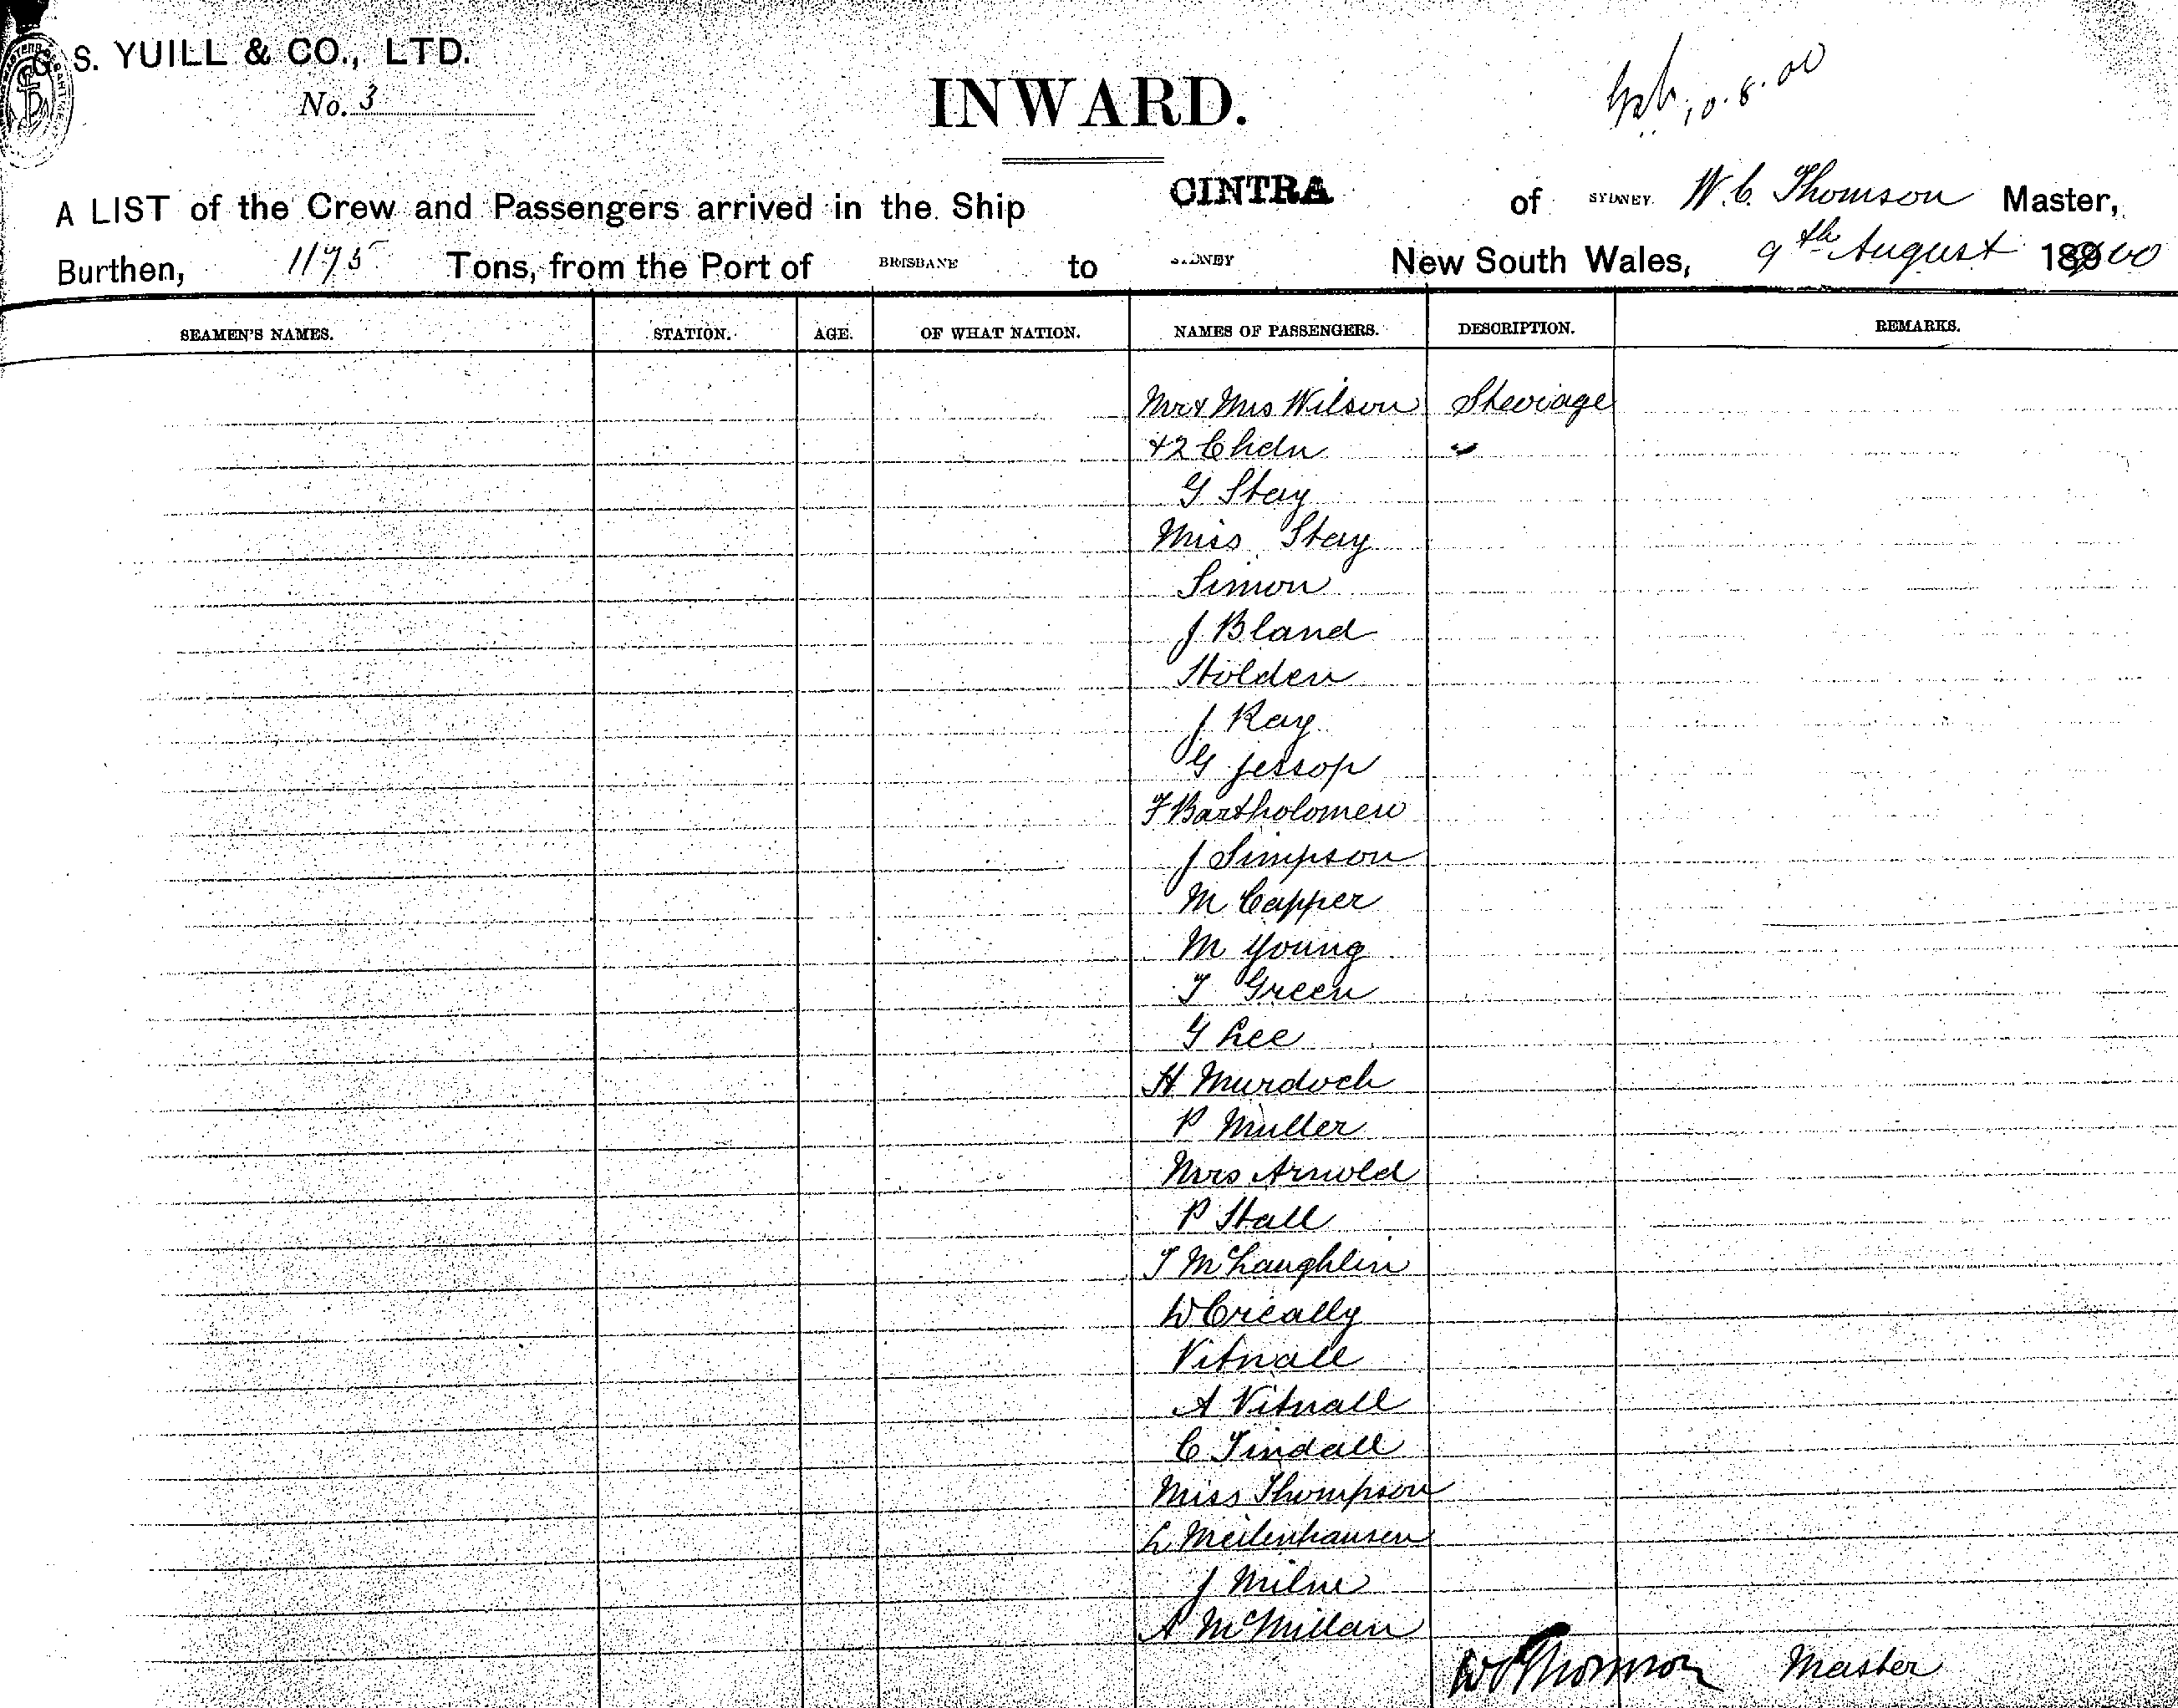 G. S. YUILL & CO., LTD.
No. 3
INWARD.
10.8.00
A LIST of the Crew and Passengers arrived in the Ship CINTRA of SYDNEY W. C. Thomson Master,
Burthen, 1195 Tons, from the Port of BRISBANE to SYDNEY New South Wales, 9th August 18900
SEAMEN'S NAMES. STATION. AGE. OF WHAT NATION. NAMES OF PASSENGERS. DESCRIPTION. REMARKS.
Mr & Mrs Wilson Steerage
& 2 Chdn "
G Stay
Miss Stay
Simon
J Bland
Holden
J Ray
G Jessop
F Bartholomew
J Simpson
M Capper
M Young
T Green
G Lee
H Murdoch
P Muller
Mrs Arnold
P Hall
T McLaughlin
W Creally
Vitnall
A Vitnall
C Tindall
Miss Thompson
L Meilenhausen
J Milne
A McMillan
WC Thomson Master